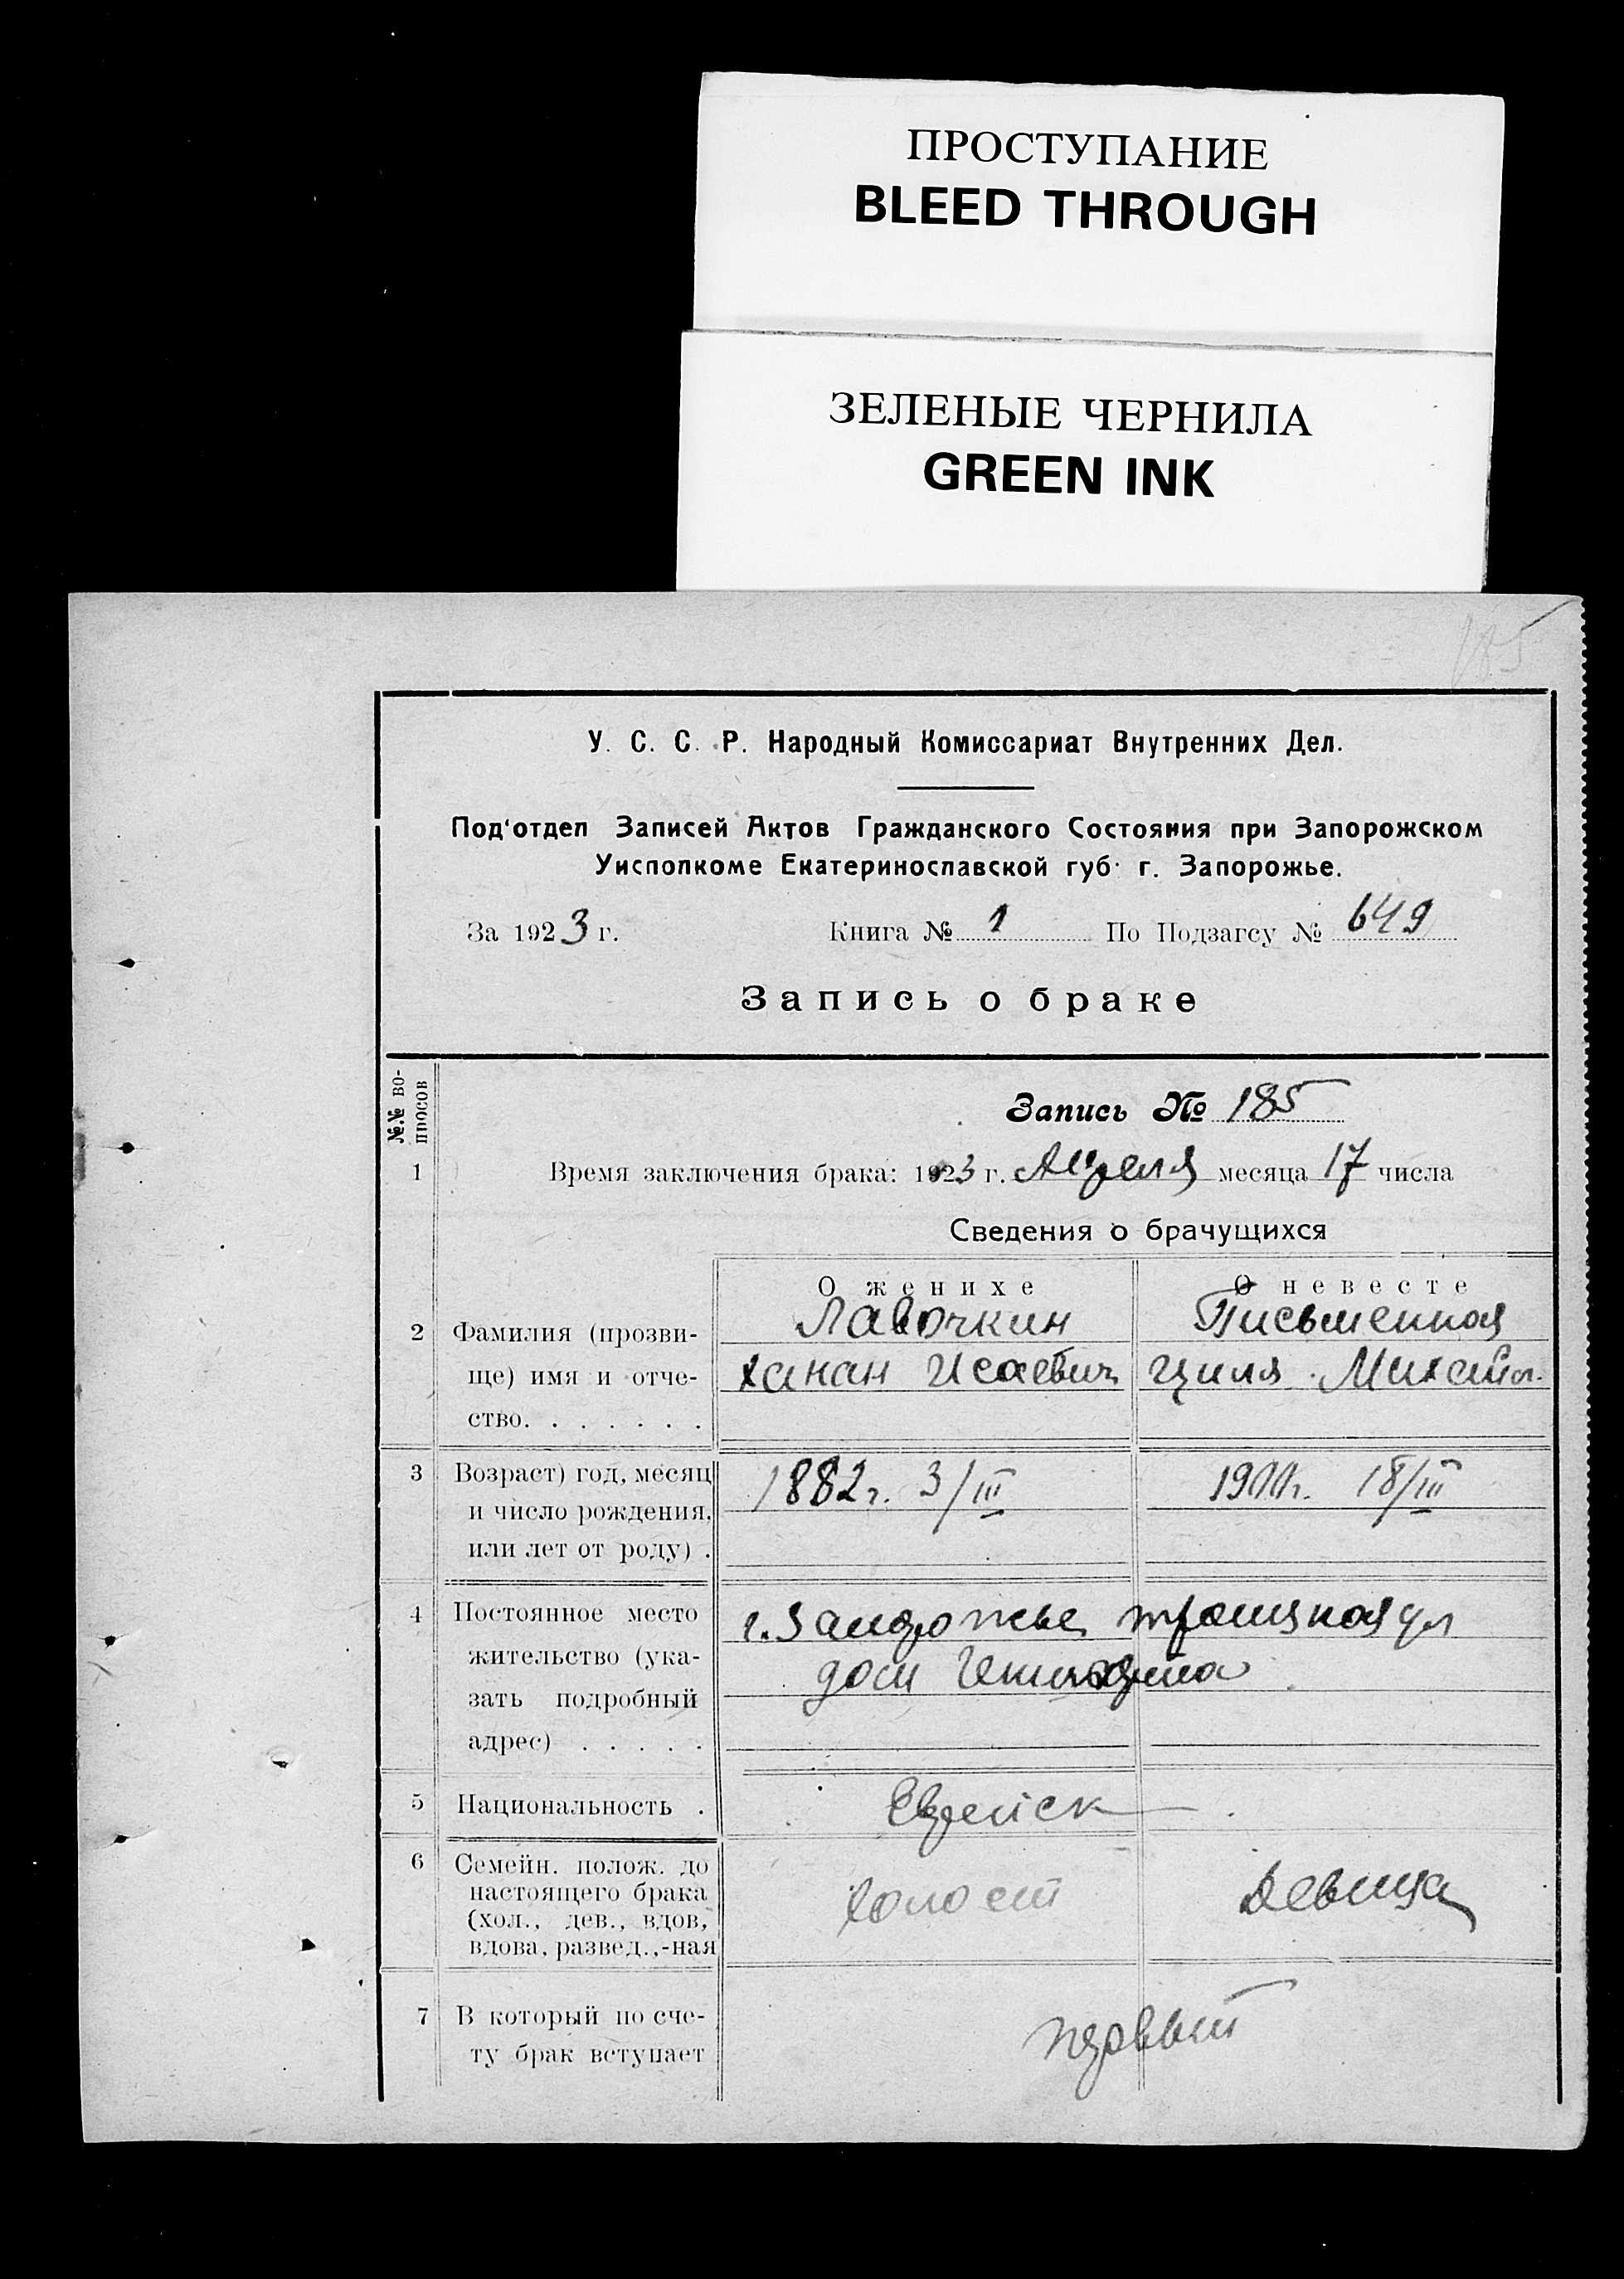 ПРОСТУПАНИЕ
BLEED THROUGH
ЗЕЛЕНЫЕ ЧЕРНИЛА
GREEN INK
185
У. С. С. Р. Народный Комиссариат Внутренних Дел.
Под'отдел Записей Актов Гражданского Состояния при Запорожском
Уисполкоме Екатеринославской губ. г. Запорожье.
За 1923 г. Книга № 1 По Подзагсу № 649
Запись о браке
№.№ во-
просов
Запись № 185
1 Время заключения брака: 1923 г. Апреля месяца 17 числа
Сведения о брачущихся
О женихе О невесте
2 Фамилия (прозви- Лавочкин Письменная
ще) имя и отче- Ханан Исаевич Циля Михайл.
ство. . . . . . .
3 Возраст) год, месяц 1882 г. 3/III 1900 г. 18/III
и число рождения,
или лет от роду) .
4 Постоянное место г. Запорожье, троицкая ул
жительство (ука- дом
зать подробный
адрес) . . . . .
5 Национальность . Еврейск
6 Семейн. полож. до
настоящего брака Холост Девица
(хол., дев., вдов,
вдова, развед.,-ная
7 В который по сче- первый
ту брак вступает